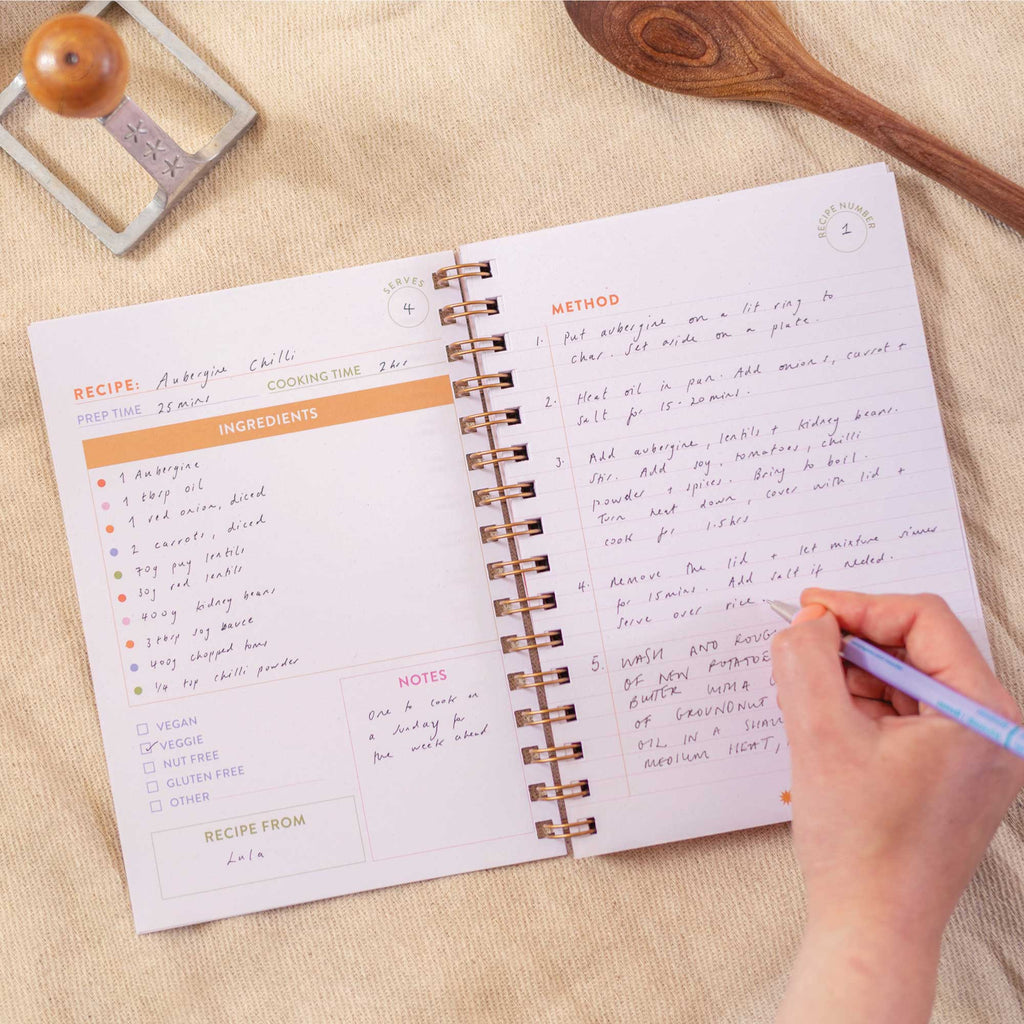 SERVES
4
RECIPE: Aubergine Chilli
PREP TIME 25 mins COOKING TIME 2 hrs
INGREDIENTS
1 Aubergine
1 tbsp oil
1 red onion, diced
2 carrots, diced
70g puy lentils
30g red lentils
400g kidney beans
3 tbsp soy sauce
400g chopped toms
1/4 tsp chilli powder
VEGAN
VEGGIE
NUT FREE
GLUTEN FREE
OTHER
NOTES
One to cook on
a Sunday for
the week ahead
RECIPE FROM
Lula
RECIPE NUMBER
1
METHOD
1. Put aubergine on a lit ring to
char. Set aside on a plate.
2. Heat oil in pan. Add onions, carrot +
salt for 15-20 mins.
3. Add aubergine, lentils + kidney beans.
Stir. Add soy, tomatoes, chilli
powder + spices. Bring to boil.
Turn heat down, cover with lid +
cook for 1.5hrs
4. Remove the lid + let mixture simmer
for 15 mins. Add salt if needed.
Serve over rice.
5. WASH AND
OF NEW
BUTTER WITH A
OF GROUNDNUT
OIL IN A
MEDIUM HEAT,